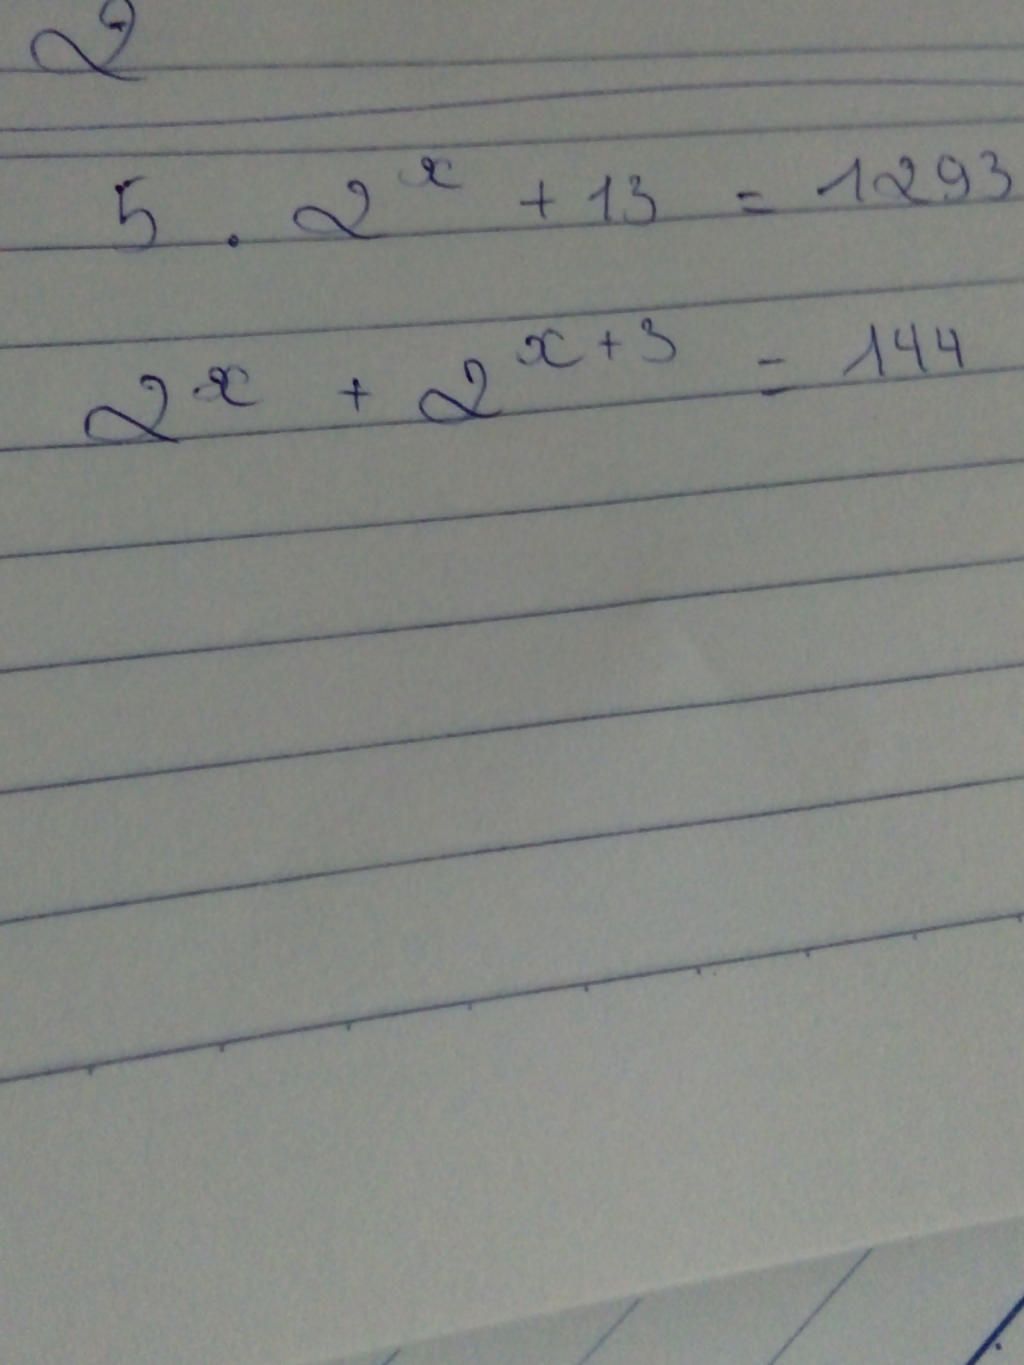 2
5 . 2^x + 13 = 1293
2^x + 2^{x+3} = 144